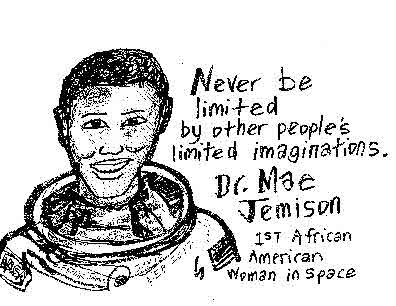 Never be
limited
by other people's
limited imaginations.
Dr. Mae
Jemison
1ST African
American
Woman in Space